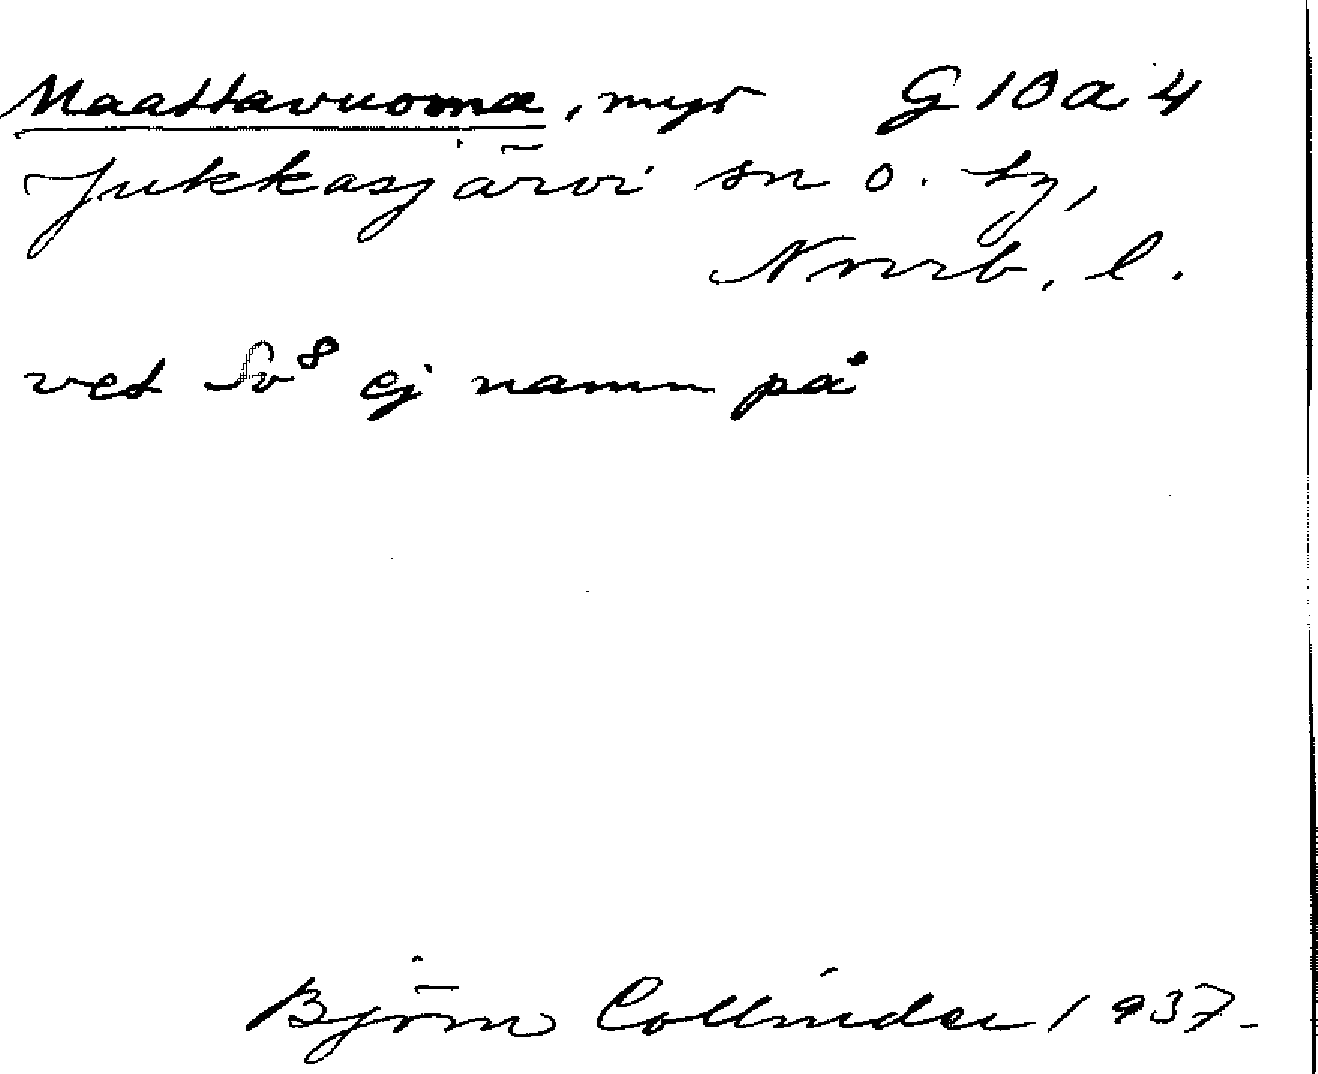 Maattavuoma, myr G10a4
Jukkasjärvi sn o. tg,
Norrb. l.
vet Sv⁸ ej namn på
Björn Collinder 1937.